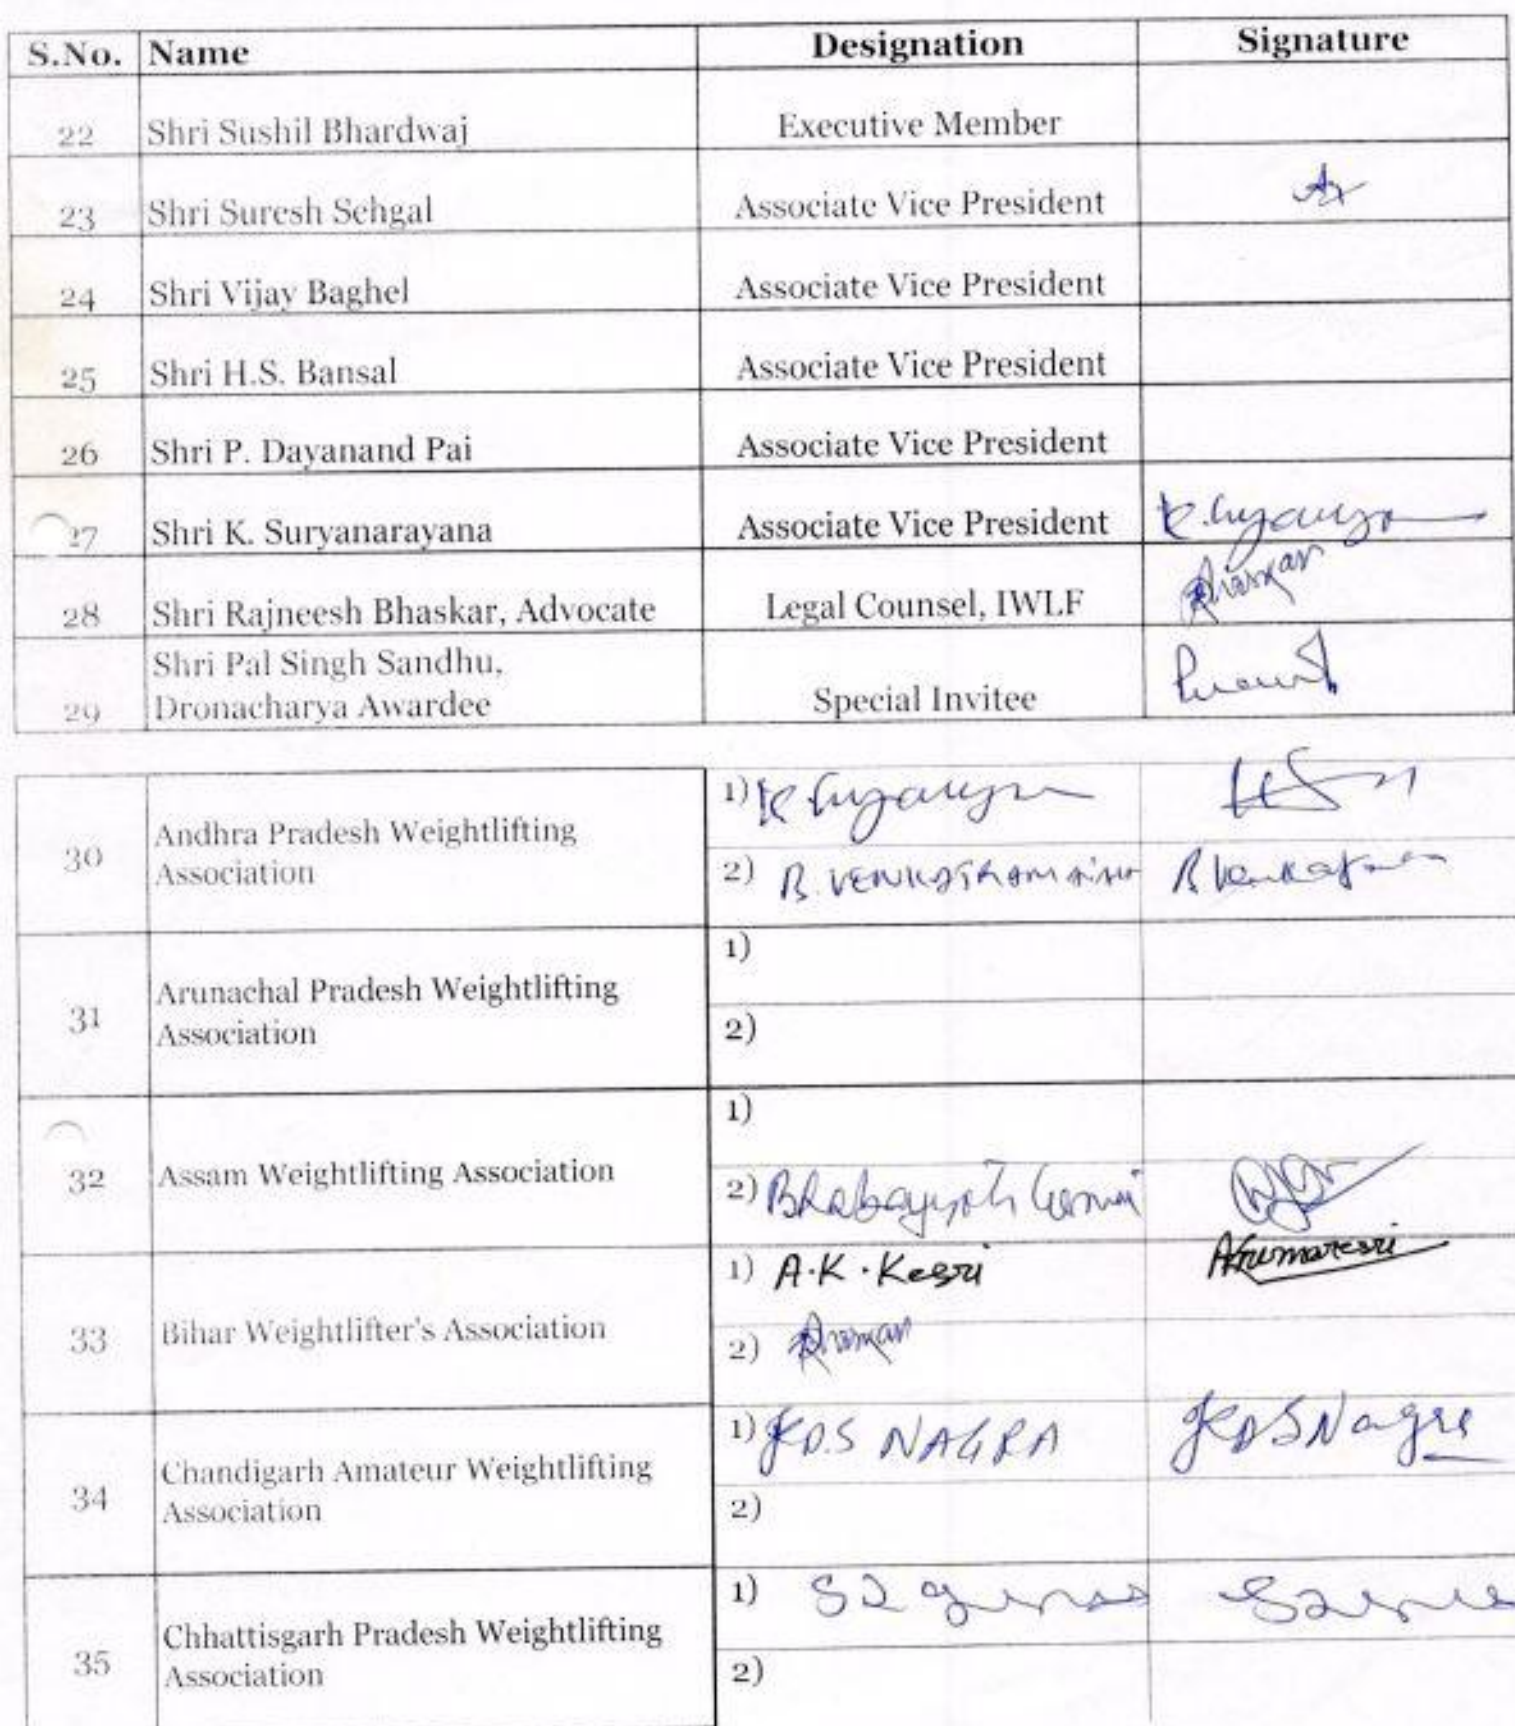 S.No. Name Designation Signature
22 Shri Sushil Bhardwaj Executive Member
23 Shri Suresh Sehgal Associate Vice President
24 Shri Vijay Baghel Associate Vice President
25 Shri H.S. Bansal Associate Vice President
26 Shri P. Dayanand Pai Associate Vice President
27 Shri K. Suryanarayana Associate Vice President
28 Shri Rajneesh Bhaskar, Advocate Legal Counsel, IWLF
Shri Pal Singh Sandhu,
29 Dronacharya Awardee Special Invitee
1)
30 Andhra Pradesh Weightlifting
Association
2) B. VENKATRAMAIAH
1)
31 Arunachal Pradesh Weightlifting
Association
2)
1)
32 Assam Weightlifting Association
2)
1) A.K. Kesri
33 Bihar Weightlifter's Association
2)
1) KDS NAGRA KDSNagra
34 Chandigarh Amateur Weightlifting
Association
2)
1)
35 Chhattisgarh Pradesh Weightlifting
Association
2)